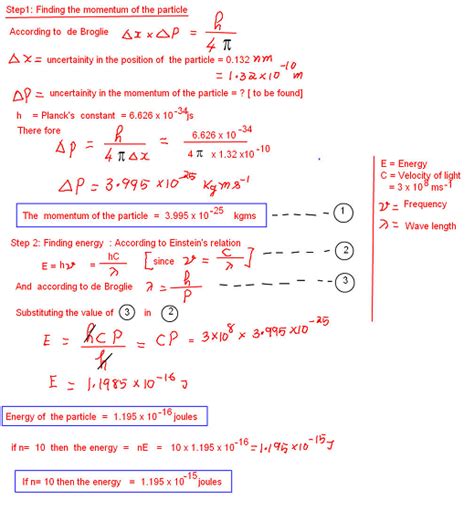 Step1: Finding the momentum of the particle
According to de Broglie Δx x Δp = h / 4π
Δx = uncertainity in the position of the particle = 0.132 nm
= 1.32 x 10^-10 m
Δp = uncertainity in the momentum of the particle = ? [ to be found]
h = Planck's constant = 6.626 x 10^-34 js
There fore
Δp = h / 4πΔx = 6.626 x 10^-34 / 4π x 1.32 x 10^-10
Δp = 3.995 x 10^-25 kg m s^-1
The momentum of the particle = 3.995 x 10^-25 kgms
1
E = Energy
C = Velocity of light
= 3 x 10^8 ms^-1
ν = Frequency
λ = Wave length
Step 2: Finding energy : According to Einstein's relation
E = hν = hC / λ [since ν = C / λ]
2
And according to de Broglie λ = h / P
3
Substituting the value of 3 in 2
E = hCP / h = CP = 3x10^8 x 3.995 x10^-25
E = 1.1985 x 10^-16 J
Energy of the particle = 1.195 x 10^-16 joules
if n= 10 then the energy = nE = 10 x 1.195 x 10^-16 = 1.195 x 10^-15 J
If n= 10 then the energy = 1.195 x 10^-15 joules